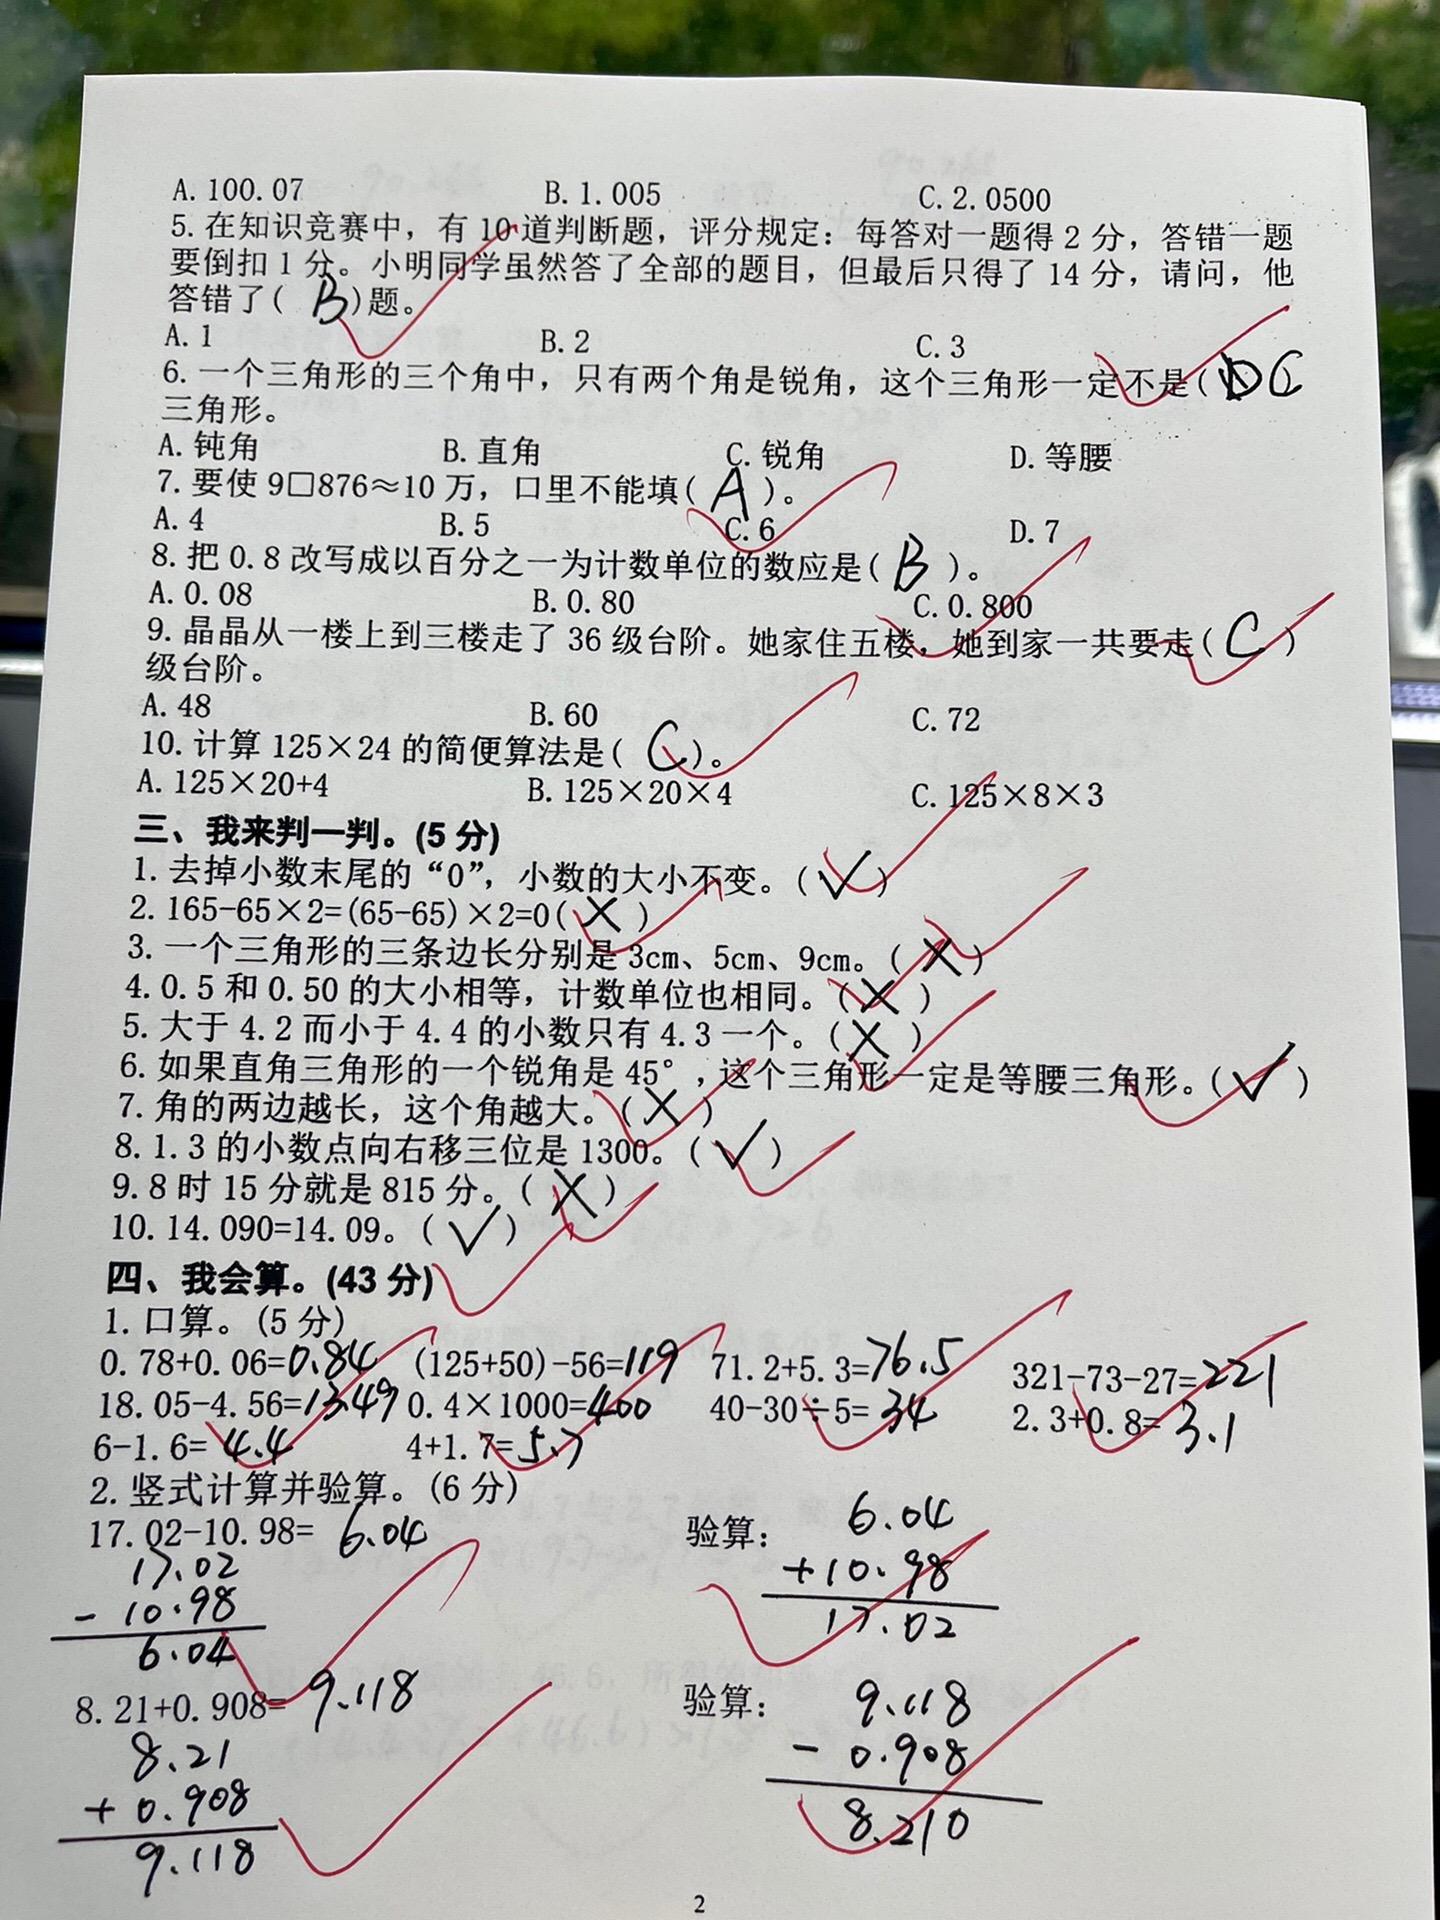 A.100.07 B.1.005 C.2.0500
5.在知识竞赛中，有10道判断题，评分规定：每答对一题得2分，答错一题
要倒扣1分。小明同学虽然答了全部的题目，但最后只得了14分，请问，他
答错了( B )题。
A.1 B.2 C.3
6.一个三角形的三个角中，只有两个角是锐角，这个三角形一定不是( C
三角形。
A.钝角 B.直角 C.锐角 D.等腰
7.要使9□876≈10万，口里不能填( A )。
A.4 B.5 C.6 D.7
8.把0.8改写成以百分之一为计数单位的数应是( B )。
A.0.08 B.0.80 C.0.800
9.晶晶从一楼上到三楼走了36级台阶。她家住五楼，她到家一共要走( C )
级台阶。
A.48 B.60 C.72
10.计算125×24的简便算法是( C )。
A.125×20+4 B.125×20×4 C.125×8×3
三、我来判一判。(5分)
1.去掉小数末尾的“0”，小数的大小不变。( √ )
2.165-65×2=(65-65)×2=0( × )
3.一个三角形的三条边长分别是3cm、5cm、9cm。( × )
4.0.5和0.50的大小相等，计数单位也相同。( × )
5.大于4.2而小于4.4的小数只有4.3一个。( × )
6.如果直角三角形的一个锐角是45°,这个三角形一定是等腰三角形。( √ )
7.角的两边越长，这个角越大。( × )
8.1.3的小数点向右移三位是1300。( √ )
9.8时15分就是815分。( × )
10.14.090=14.09。( √ )
四、我会算。(43分)
1.口算。(5分)
0.78+0.06=0.84 (125+50)-56=119 71.2+5.3=76.5 321-73-27=221
18.05-4.56=13.49 0.4×1000=400 40-30÷5=34 2.3+0.8=3.1
6-1.6=4.4 4+1.7=5.7
2.竖式计算并验算。(6分)
17.02-10.98= 6.04 验算: 6.04
17.02 +10.98
- 10.98 17.02
6.04
8.21+0.908= 9.118 验算: 9.118
8.21 - 0.908
+ 0.908 8.210
9.118
2